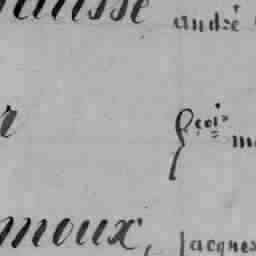 andré
r
fçois m
moux, Jacques